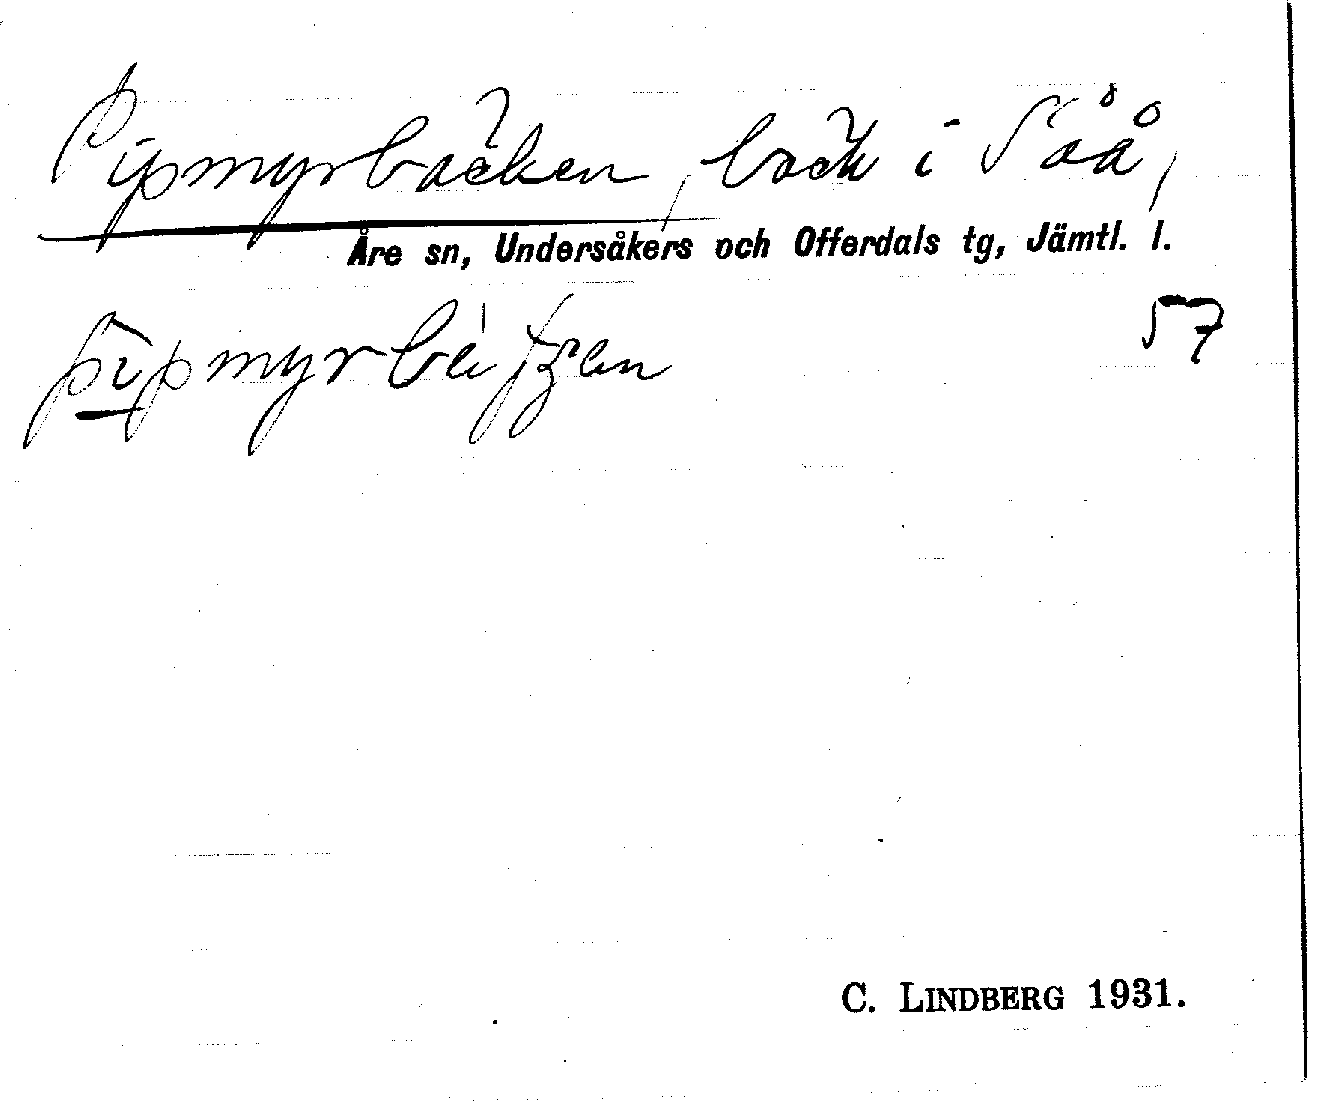 Pipmyrbäcken, bäck i Såå,
Åre sn, Undersåkers och Offerdals tg, Jämtl. l.
57
C. LINDBERG 1931.